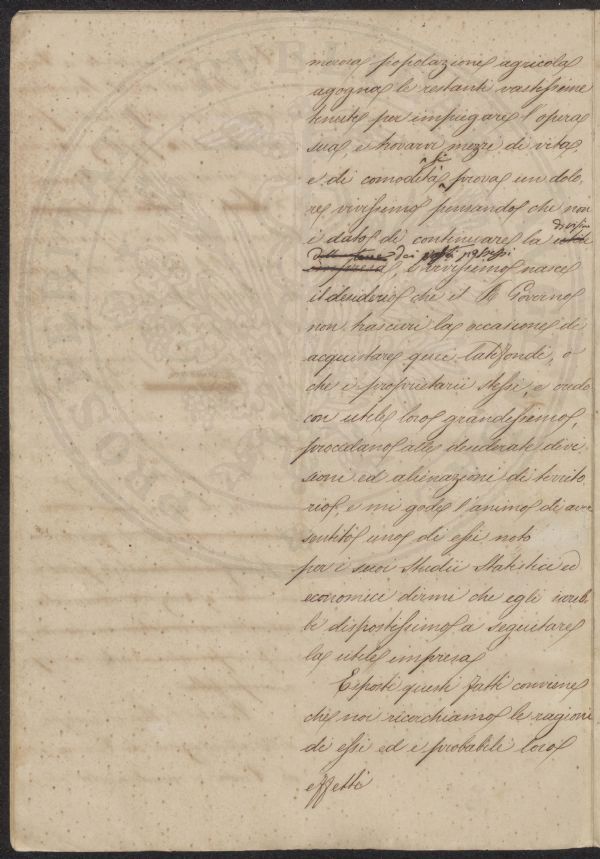 merosa popolazione agricola
agogna le restanti vastissime
tenute per impiegare l'opera
sua, e trovarvi mezzi di vita,
e di comodità si prova un dolo,
re vivissimo pensando che non
è dato di continuare la divisione utile
delle terre dei posti possessi
impresa, e vivissimo nasce
il desiderio che il R. Governo
non trascuri la occasione di
acquistare quei latifondi, o
che i proprietarii stessi, e credo
con utile loro grandissimo,
procedano alle desiderate divi
sioni ed alienazioni di territo
rio, e mi gode l'animo di aver
sentito uno di essi noto
per i suoi studii statistici ed
economici dirmi che egli sareb,
be dispostissimo a seguitare
la utile impresa
Esposti questi fatti conviene
che noi ricerchiamo le ragioni
di essi ed i probabili loro
effetti